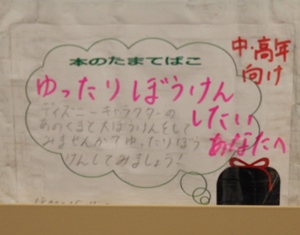 本のたまてばこ
中・高年
向け
ゆったりぼうけん
したい
あなたへ
ディズニーキャラクターの
あのくまと大ぼうけんをして
みませんか？ゆったりぼう
けんしてみましょう！